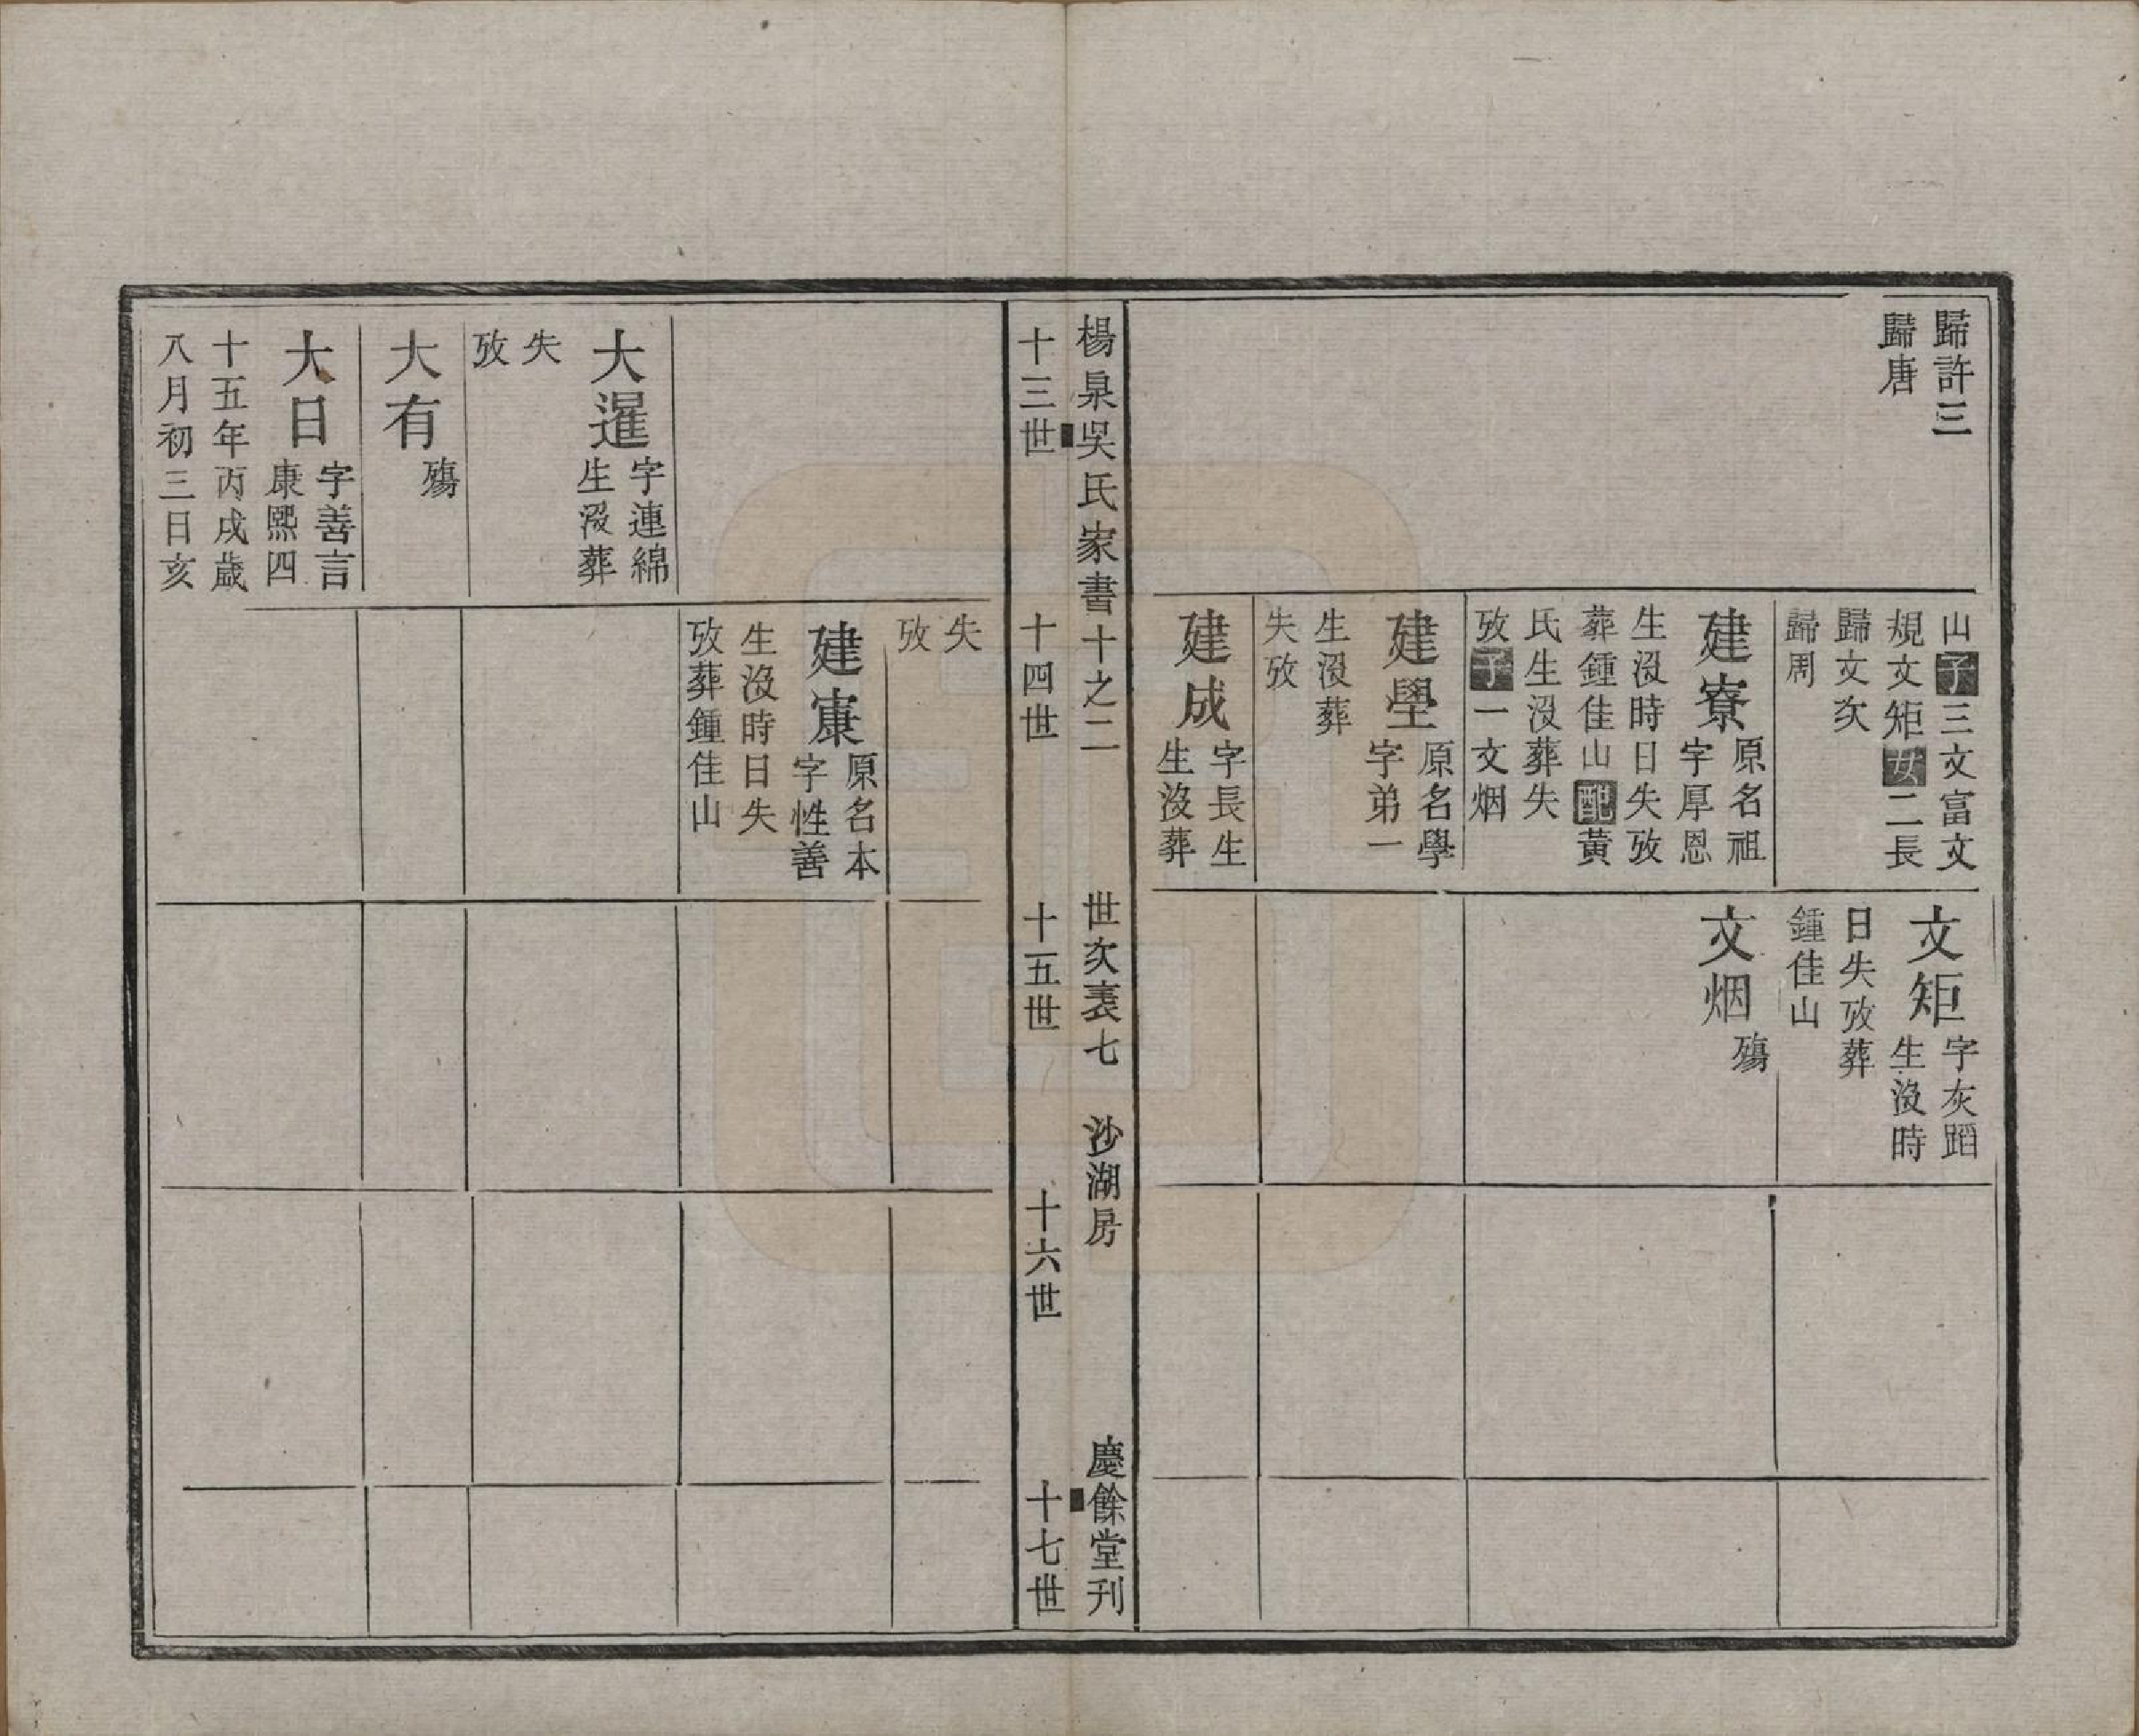 歸許三
歸唐
山子三文富文
規文矩女二長
歸文次
歸周
建寮
原名祖
字厚恩
生沒時日失攷
葬鍾佳山配黃
氏生沒葬失
攷子一文烟
建壆
原名學
字弟一
生沒葬
失攷
建成
字長生
生沒葬
文矩
字灰蹈
生沒時
日失攷葬
鍾佳山
文烟
殤
楊泉吳氏家書十之二
世次表七
沙湖房
慶餘堂刊
十三世
十四世
十五世
十六世
十七世
大暹
字連綿
生沒葬
失
攷
大有
殤
大日
字善言
康熙四
十五年丙戌歲
八月初三日亥
失
攷
建寍
原名本
字性善
生沒時日失
攷葬鍾佳山